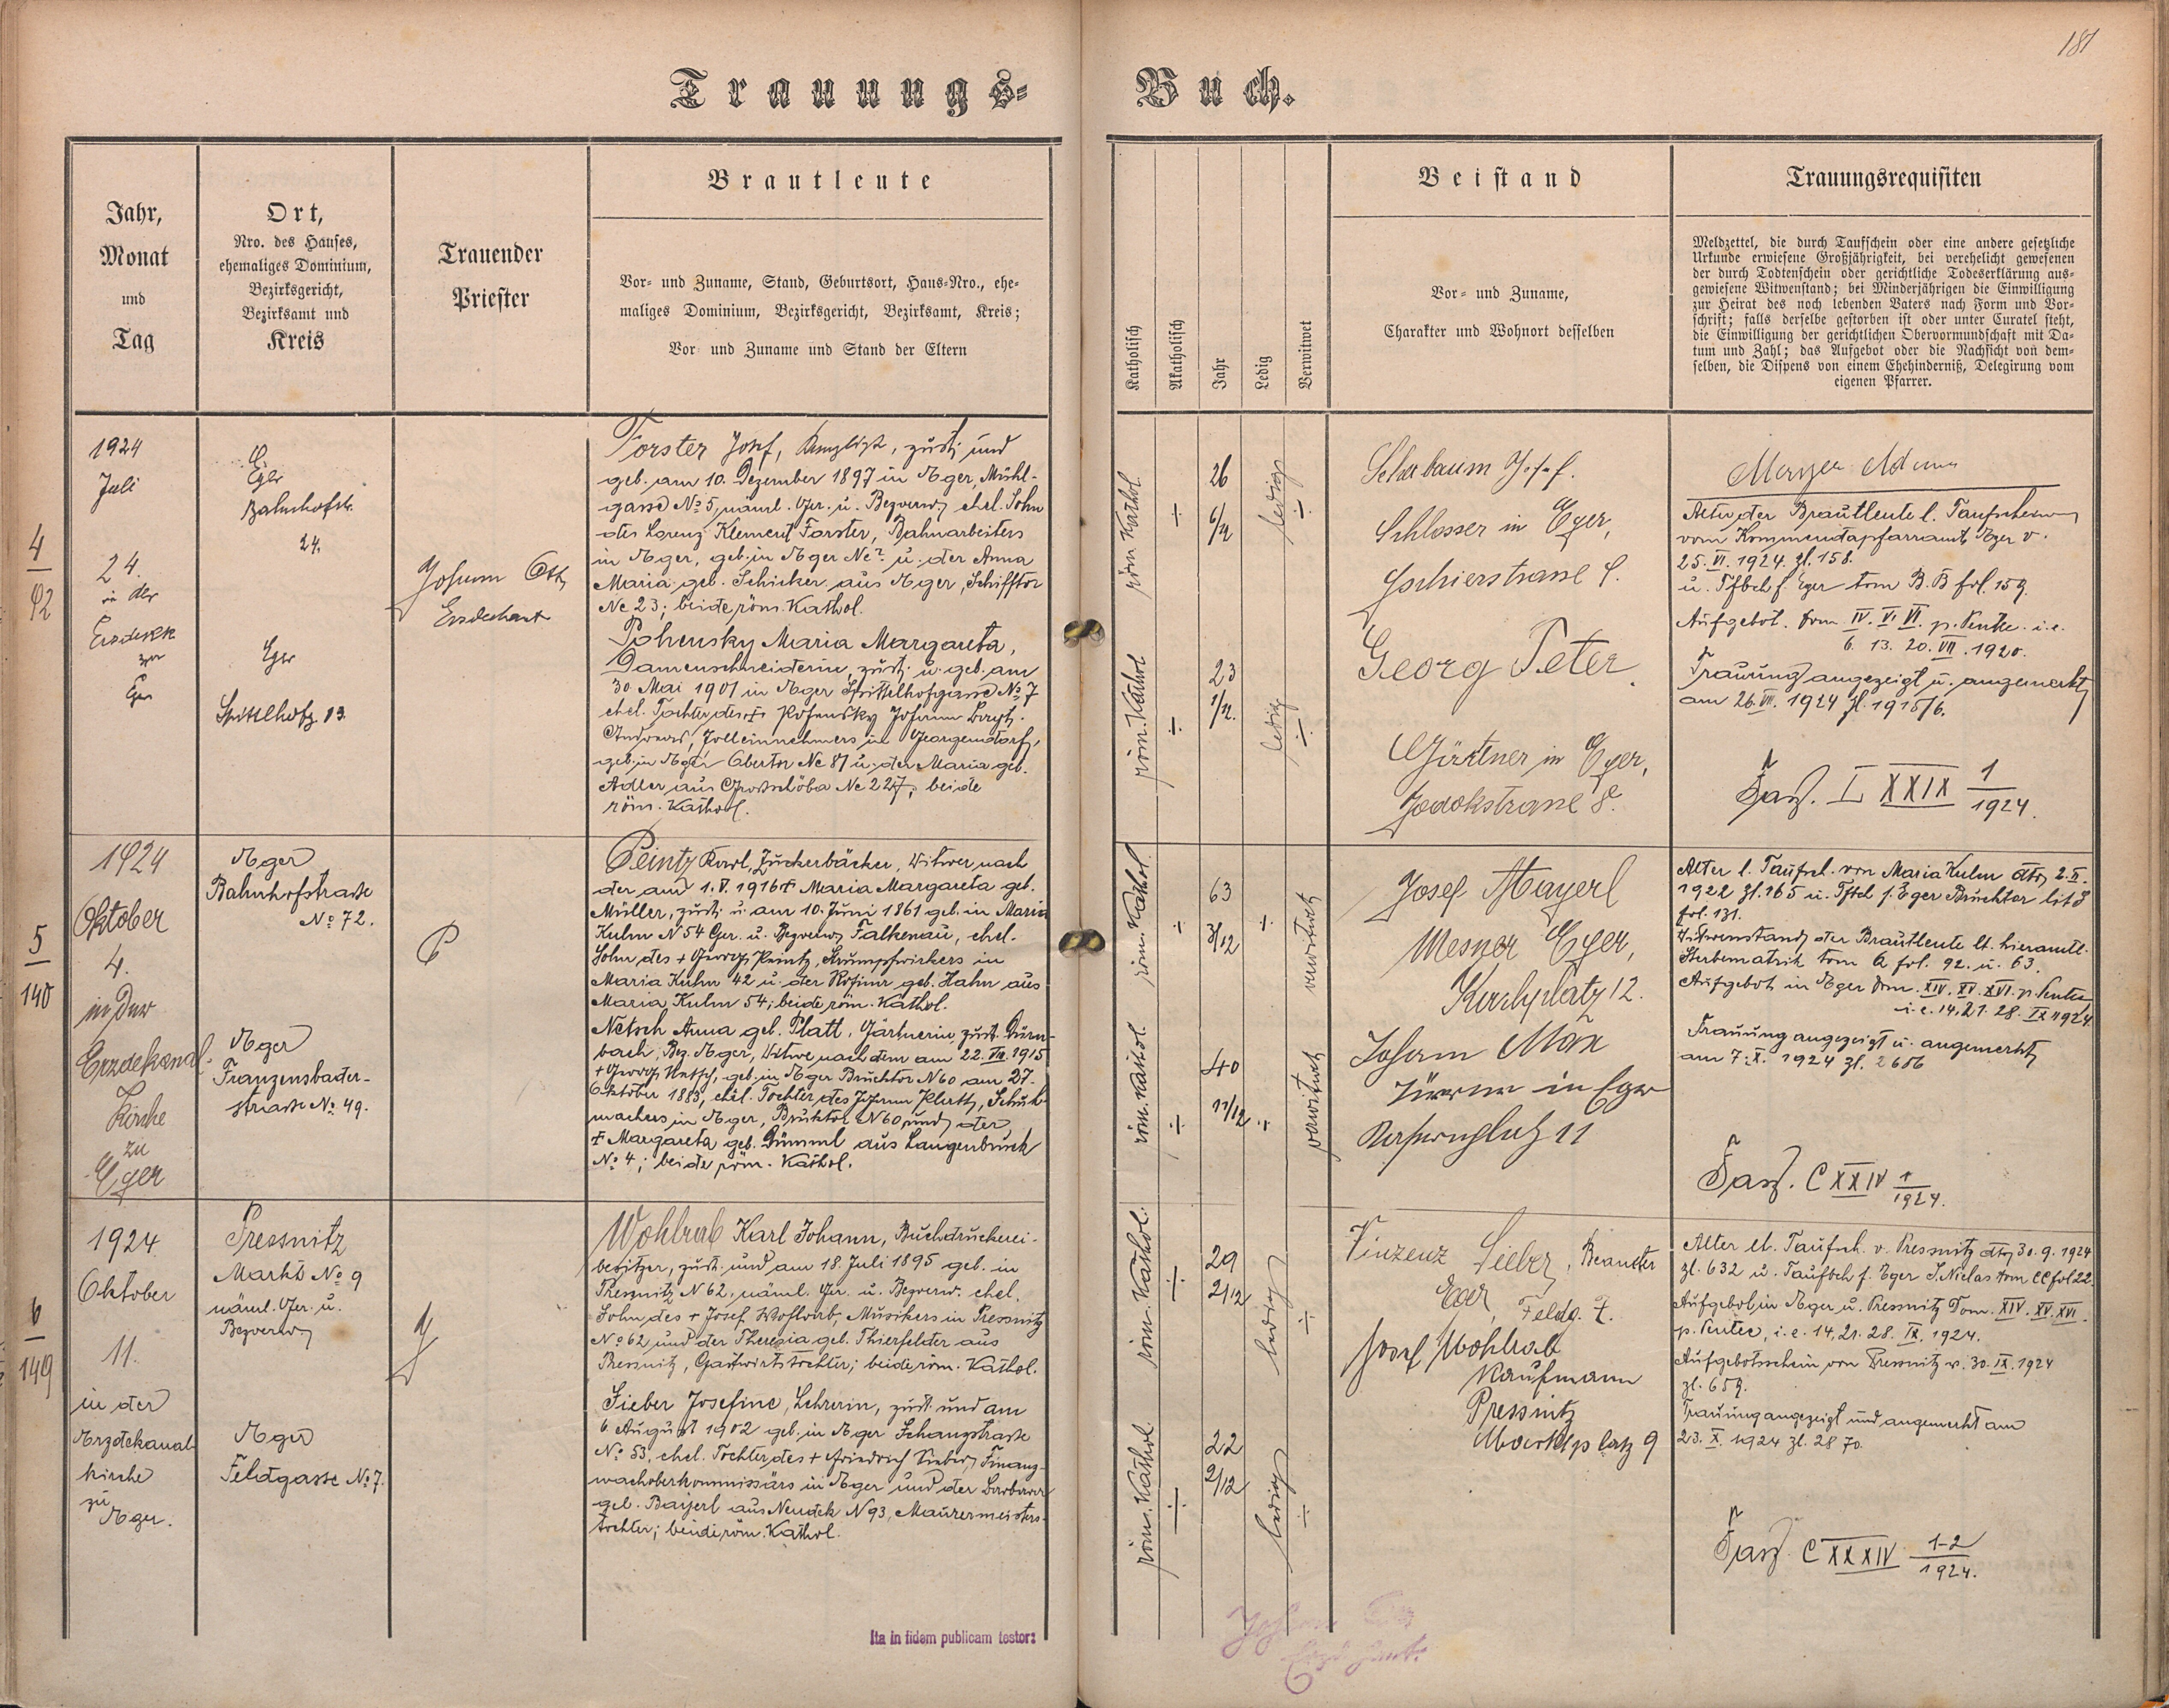 181
Trauungs-
Buch.
Jahr,
Monat
und
Tag
Ort,
Nro. des Hauses,
ehemaliges Dominium,
Bezirksgericht,
Bezirksamt und
Kreis
Trauender
Priester
Brautleute
Vor- und Zuname, Stand, Geburtsort, Haus-Nro., ehe-
maliges Dominium, Bezirksgericht, Bezirksamt, Kreis;
Vor und Zuname und Stand der Eltern
Katholisch
Akatholisch
Jahr
Ledig
Verwitwet
Beistand
Vor- und Zuname,
Charakter und Wohnort desselben
Trauungsrequisiten
Meldzettel, die durch Taufschein oder eine andere gesetzliche
Urkunde erwiesene Großjährigkeit, bei verehelicht gewesenen
der durch Todtenschein oder gerichtliche Todeserklärung aus-
gewiesene Witwenstand; bei Minderjährigen die Einwilligung
zur Heirat des noch lebenden Vaters nach Form und Vor-
schrift; falls derselbe gestorben ist oder unter Curatel steht,
die Einwilligung der gerichtlichen Obervormundschaft mit Da-
tum und Zahl; das Aufgebot oder die Nachsicht von dem-
selben, die Dispens von einem Ehehinderniß, Delegirung vom
eigenen Pfarrer.
4
92
1924
Juli
24.
in der
Erzdekk
zu
Eger
Eger
Bahnhofstr.
24.
Eger
Spittlhofg. 13.
Johann Ott
Erzdechant
Forster Josef, Kanzlist, zust. und
geb. am 10. Dezember 1897 in Eger, Mühl-
gasse No 5, näml. Ger. u. Bezverw. ehel. Sohn
des Lorenz Klement Forster, Bahnarbeiters
in Eger, geb. in Eger u. der Anna
Maria geb. Schicker aus Eger, Schifftor
Nc 23; beide röm. Kathol.
Pohensky Maria Margareta,
Damenschneiderin, zust. u. geb. am
30. Mai 1901 in Eger Spittelhofgasse No 7
ehel. Tochter des + Pohensky Johann
Andreas, Zolleinnehmers in Georgendorf,
geb. in Eger Obertor Nc 87 u. der Maria geb.
Adler aus Nc 227, beide
röm. Kathol.
röm. Kathol.
26
6/12
ledig
röm. Kathol
23
1/12.
ledig
Scharbaum Josef.
Schlosser in Eger,
Gschierstrasse 9.
Georg Peter.
Gärtner in Eger,
Jodokstrasse 8.
Mayer Adam
Alter der Brautleute l. Taufschein
vom Kommendapfarramt Eger v.
25. VI. 1924. Zl. 158.
u. Tfbch f. Eger tom B. B fol. 159.
Aufgebot. Dom IV. V. VI. p. Pente. i. e.
6. 13. 20. VII. 1920.
Trauung angezeigt u. angemerkt
am 26. VII. 1924 Zl. 1915/6.
Fasz. L XXIX 1
1924.
5
140
1924
Oktober
4.
in der
Erzdekanal-
Kirche
zu
Eger
Eger
Bahnhofstrasse
No 72.
Eger
Franzensbader-
strasse No 49.
Peintz Karl, Zuckerbäcker, Witwer nach
der am 1. V. 1916 + Maria Margareta geb.
Müller, zust. u. am 10. Juni 1861 geb. in Maria
Kulm N 54 Ger. u. Bezverw. Falkenau, ehel.
Sohn des + Georg Peintz, Strumpfwirkers in
Maria Kulm 42 u. der Rosina geb. Hahn aus
Maria Kulm 54; beide röm. Kathol.
Netsch Anna geb. Platt, Gärtnerin zust. Dürn-
bach, Bez. Eger, Witwe nach dem am 22. VIII. 1915
+ Georg Netsch, geb. in Eger Brucktor N 60 am 27.
Oktober 1883, ehel. Tochter des Johann Platt, Schuh-
machers in Eger, Brucktor N 60 und der
+ Margareta geb. Dümml aus Langenbruck
No 4; beide röm. Kathol.
röm. Kathol.
63
3/12
verwitwet
röm. Kathol.
40
11/12
verwitwet
Josef Mayerl
Mesner Eger,
Kirchplatz 12.
Johann Max
in Eger
11
Alter l. Taufsch. von Maria Kulm dto 2. II.
1922 Zl. 165 u. Tfbch f. Eger Brucktor lit
fol. 131.
Witwenstand der Brautleute lt. hieramtl.
Sterbematrik tom Q fol. 92. u. 63.
Aufgebot in Eger Dom. XIV. XV. XVI. p. Pentec
i. e. 14. 21. 28. IX 1924.
Trauung angezeigt u. angemerkt
am 7. X. 1924 Zl. 2656
Fasz. C XXIV 1
1924.
6
149
1924
Oktober
11.
in der
Erzdekanal-
kirche
zu
Eger.
Pressnitz
Markt No 9
näml. Ger. u.
Bezverw
Eger
Feldgasse No 7.
Wohlrab Karl Johann, Buchdruckerei-
besitzer, zust. und am 18. Juli 1895 geb. in
Pressnitz N 62, näml. Ger. u. Bezverw. ehel.
Sohn des + Josef Wohlrab, Musikers in Pressnitz
No 62 und der Theresia geb. Thierfelder aus
Pressnitz, Gastwirtstochter; beide röm. Kathol.
Sieber Josefine, Lehrerin, zust. und am
6. August 1902 geb. in Eger Schanzstrasse
No 53, ehel. Tochter des + Friedrich Sieber, Finanz-
wachoberkommissärs in Eger und der Barbara
geb. Bayerl aus Neudek N 93, Maurermeisters-
tochter; beide röm. Kathol.
röm. Kathol.
29
2/12
ledig
röm. Kathol.
22
2/12
ledig
Vinzenz Sieber, Beamter
Eger, Feldg. 7.
Josef Wohlrab
Kaufmann
Pressnitz
Marktplatz 9
Alter lt. Taufsch. v. Pressnitz dto 30. 9. 1924
Zl. 632 u. Taufbch f. Eger S. Niclas tom CC fol 22.
Aufgebot in Eger u. Pressnitz Dom. XIV. XV. XVI.
p. Pentec, i. e. 14. 21. 28. IX. 1924.
Aufgebotsschein von Pressnitz v. 30. IX. 1924
Zl. 659.
Trauung angezeigt und angemerkt am
23. X. 1924 Zl. 2870.
Fasz. C XXXIV 1-2
1924.
Ita in fidem publicam testor:
Johann Ott
Erzdechant.